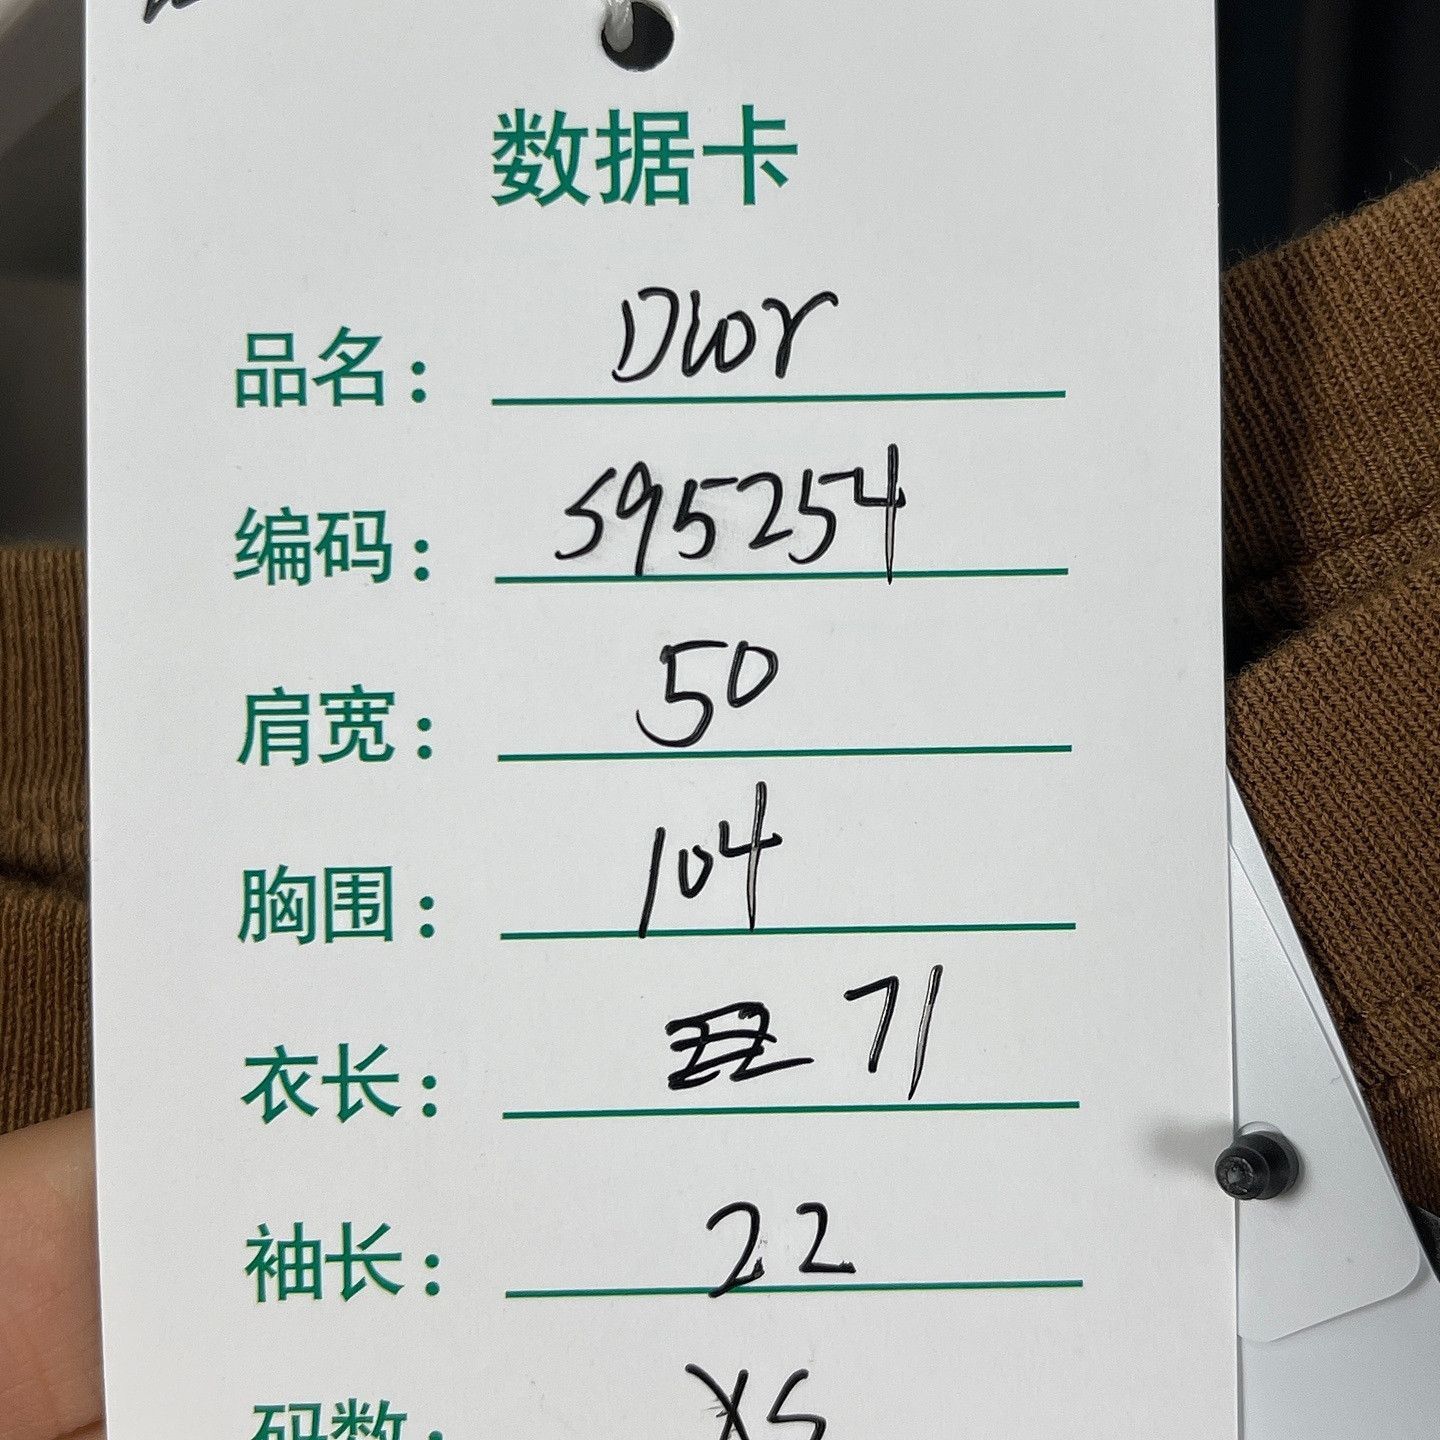 数据卡
品名: Dior
编码: S95254
肩宽: 50
胸围: 104
衣长: 71
袖长: 22
码数: XS